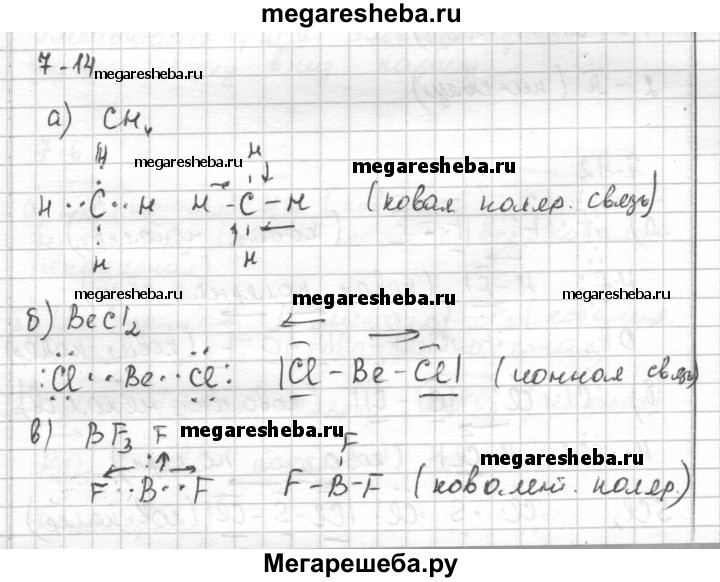 megaresheba.ru
7-14 megaresheba.ru
а) CH₄
H megaresheba.ru H megaresheba.ru
H ·· C ·· H H - C - H (ковал поляр. связь)
H H
megaresheba.ru megaresheba.ru megaresheba.ru
б) BeCl₂
:Cl ·· Be ·· Cl: |Cl - Be - Cl| (ионная связь)
в) BF₃ F megaresheba.ru F megaresheba.ru
F ·· B ·· F F - B - F (ковалент. поляр.)
Мегарешеба.ру